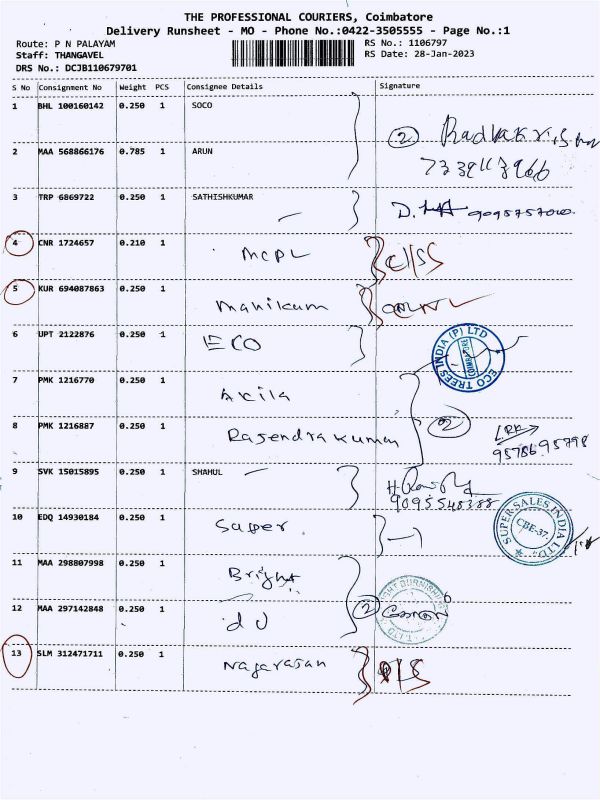 THE PROFESSIONAL COURIERS, Coimbatore
Delivery Runsheet - MO - Phone No.:0422-3505555 - Page No.:1
Route: P N PALAYAM
Staff: THANGAVEL
DRS No.: DCJB110679701
RS No.: 1106797
RS Date: 28-Jan-2023
S No Consignment No Weight PCS Consignee Details Signature
1 BHL 100160142 0.250 1 SOCO
2 MAA 568866176 0.785 1 ARUN
2
3 TRP 6869722 0.250 1 SATHISHKUMAR
4 CNR 1724657 0.210 1 MCPL
5 KUR 694087863 0.250 1 Manikum
6 UPT 2122876 0.250 1 ECO
ECO TREES INDIA (P) LTD COIMBATORE
7 PMK 1216770 0.250 1 Akila
8 PMK 1216887 0.250 1 Rajendrakumar
2 95786 95798
9 SVK 15015895 0.250 1 SHAHUL
9095548388
10 EDQ 14930184 0.250 1 Super
SUPER SALES INDIA LTD. CBE-37.
11 MAA 298807998 0.250 1 Bright
12 MAA 297142848 0.250 1 do
2
13 SLM 312471711 0.250 1 Nagarasan